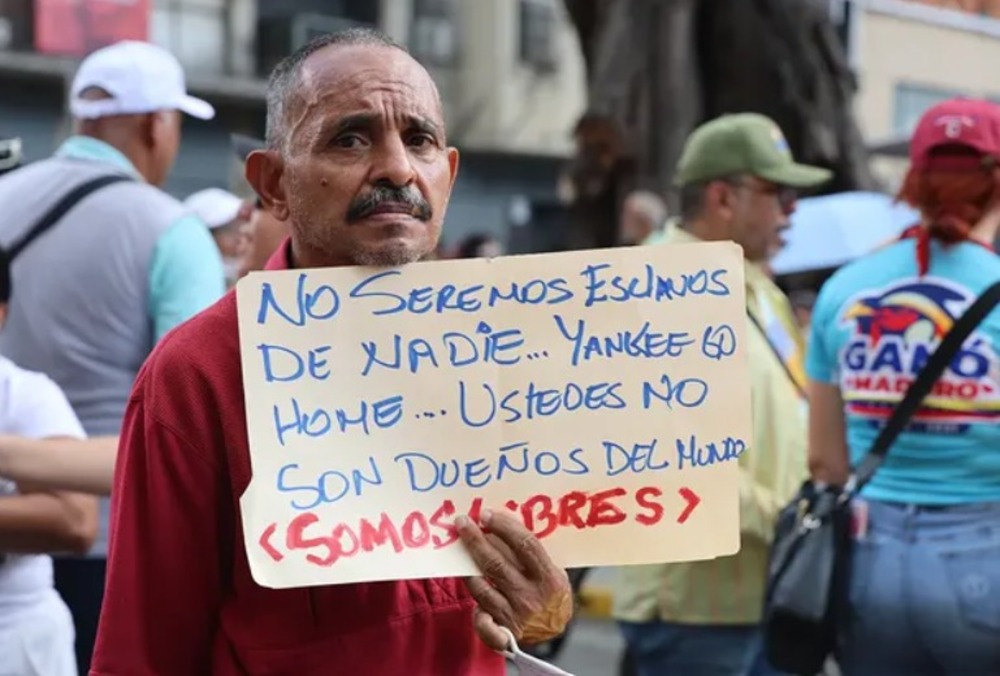 NO SEREMOS ESCLAVOS
DE NADIE... YANKEE GO
HOME.... USTEDES NO
SON DUEÑOS DEL MUNDO
<SOMOS LIBRES>
GANÓ
MADURO